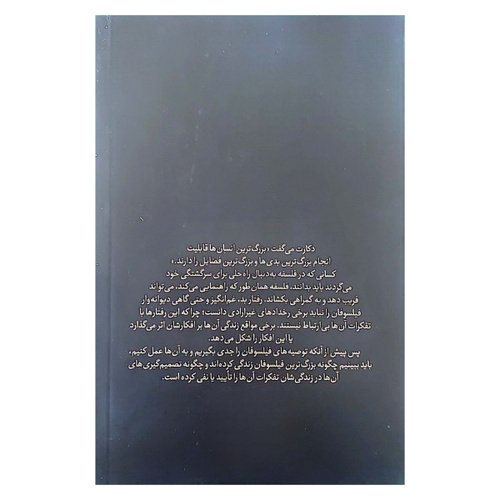 دکارت می‌گفت «بزرگ‌ترین انسان‌ها قابلیت
انجام بزرگ‌ترین بدی‌ها و بزرگ‌ترین فضایل را دارند.»
کسانی که در فلسفه به‌دنبال راه‌حلی برای سرگشتگی خود
می‌گردند باید بدانند، فلسفه همان‌طور که راهنمایی می‌کند، می‌تواند
فریب دهد و به گمراهی بکشاند. رفتار بد، غم‌انگیز و حتی گاهی دیوانه‌وار
فیلسوفان را نباید برخی رخدادهای غیرارادی دانست؛ چرا که این رفتارها با
تفکرات آن‌ها بی‌ارتباط نیستند. برخی مواقع زندگی آن‌ها بر افکارشان اثر می‌گذارد
یا این افکار را شکل می‌دهد.
پس پیش از آنکه توصیه‌های فیلسوفان را جدی بگیریم و به آن‌ها عمل کنیم،
باید ببینیم چگونه بزرگ‌ترین فیلسوفان زندگی کرده‌اند و چگونه تصمیم‌گیری‌های
آن‌ها در زندگی‌شان تفکرات آن‌ها را تأیید یا نفی کرده است.